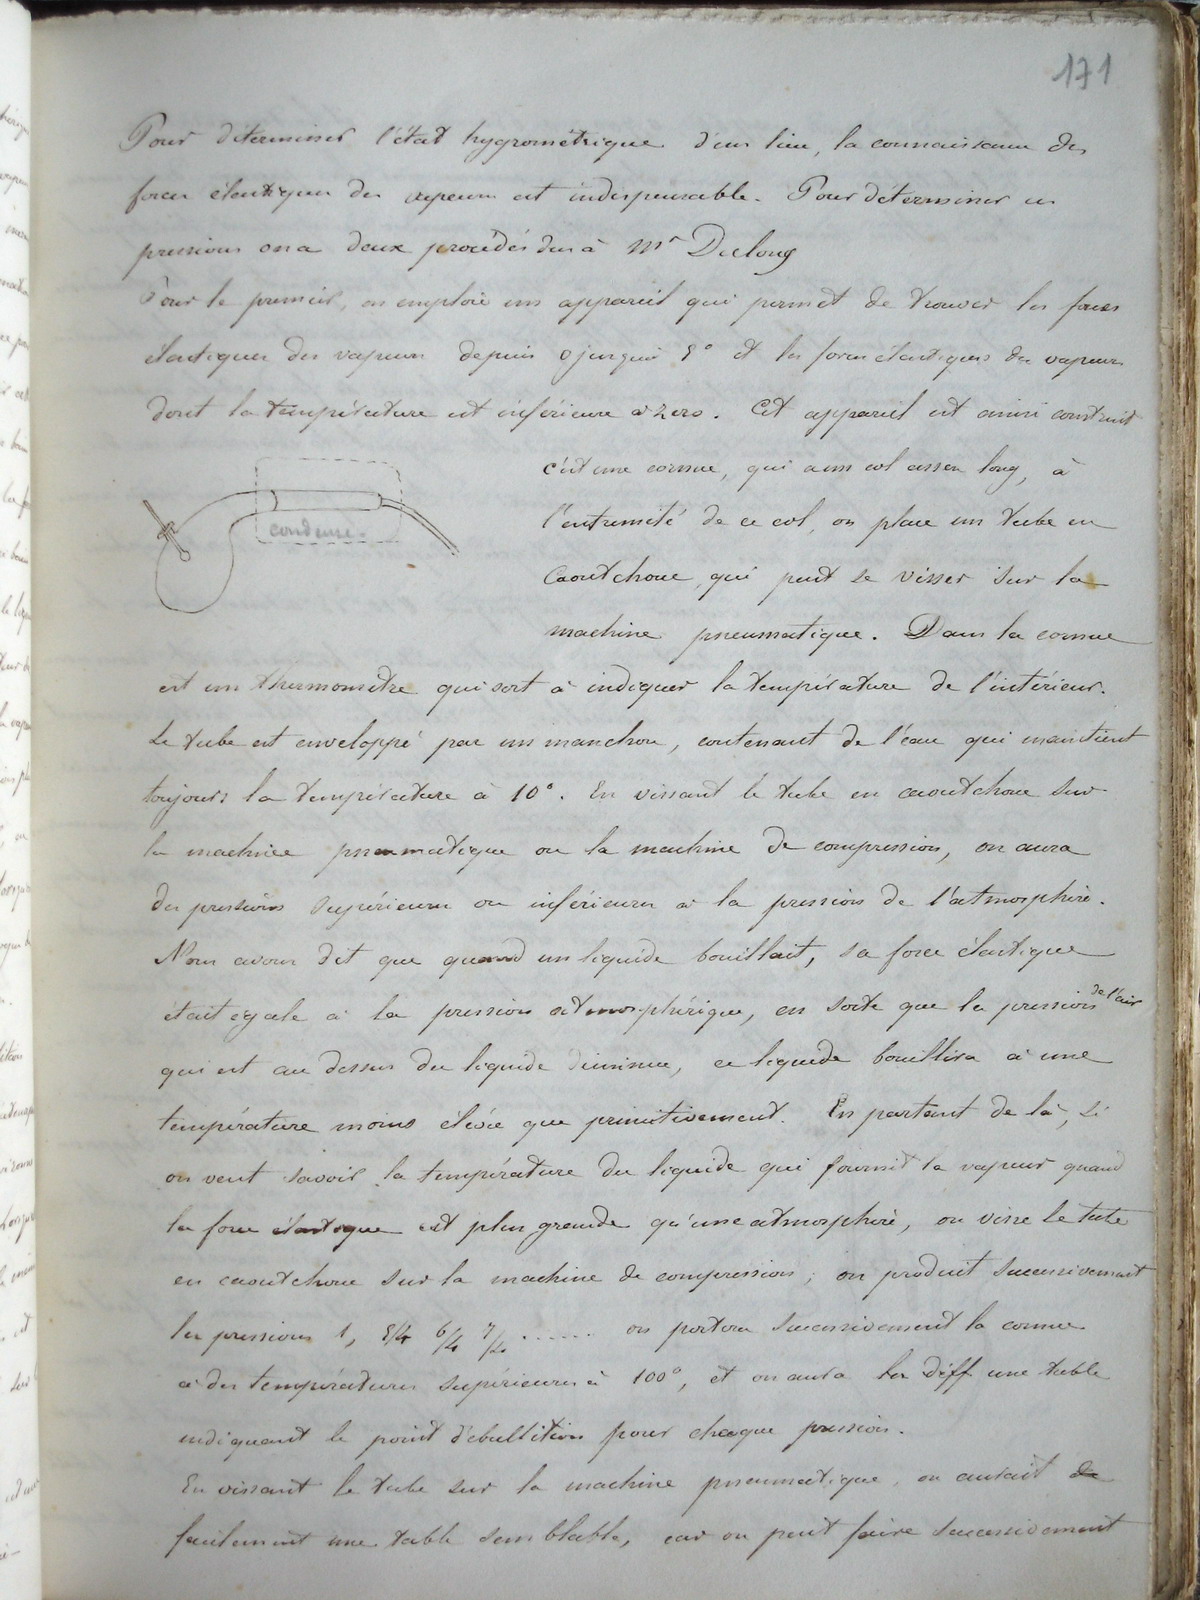 171
Pour déterminer l'état hygrométrique d'un lieu, la connaissance des
forces élastiques des vapeurs est indispensable. Pour déterminer ces
pressions on a deux procédés dus à Mr Dulong
Pour le premier, on emploie un appareil qui permet de trouver les forces
élastiques des vapeurs depuis 0 jusqu'à 5° et les forces élastiques des vapeurs
dont la température est inférieure à zero. Cet appareil est ainsi construit
c'est une cornue, qui a un col assez long, à
l'extremité de ce col, on place un tube en
Caoutchouc, qui peut se visser sur la
machine pneumatique. Dans la cornue
condense.
est un thermomètre qui sert à indiquer la température de l'intérieur.
Le tube est enveloppé par un manchon, contenant de l'eau qui maintient
toujours la température à 10°. En vissant le tube en caoutchouc sur
la machine pneumatique ou la machine de compression, on aura
des pressions supérieures ou inférieures à la pression de l'atmosphère.
Nous avons dit que quand un liquide bouillait, sa force élastique
était egale à la pression atmosphérique, en sorte que la pression de l'air
qui est au dessus du liquide diminue, ce liquide bouillira à une
température moins élevée que primitivement. En partant de là, si
on veut savoir la température du liquide qui fournit la vapeur quand
la force élastique est plus grande qu'une atmosphère, on visse le tube
en caoutchouc sur la machine de compression; on produit successivement
les pressions 1, 5/4 6/4 7/4 ...... on portera successivement la cornue
à des températures supérieures à 100°, et on aura les diff une table
indiquant le point d'ébullition pour chaque pression.
En vissant le tube sur la machine pneumatique, on aurait de
facilement une table semblable, car on peut faire successivement